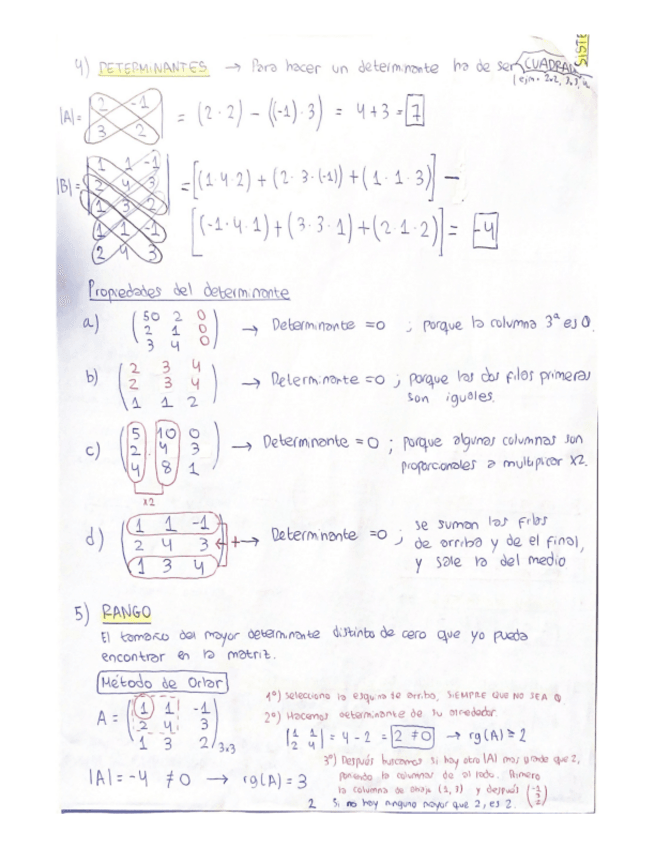 SISTE
4) DETERMINANTES → Para hacer un determinante ha de ser CUADRADA
(ejm: 2x2, 3x3, 4
|A| = |2 -1| = (2·2) - ((-1)·3) = 4+3 = 7
|3 2|
|B| = |1 1 -1| = [(1·4·2) + (2·3·(-1)) + (1·1·3)] -
|2 4 3|
|1 3 2|
1 1 -1 [(-1·4·1) + (3·3·1) + (2·1·2)] = -4
2 4 3
Propiedades del determinante
a) (50 2 0 → Determinante =0 ; porque la columna 3ª es 0.
2 1 0
3 4 0)
b) (2 3 4
2 3 4 → Determinante =0 ; porque las dos filas primeras
1 1 2) son iguales.
c) (5 10 0 → Determinante = 0 ; porque algunas columnas son
2 4 3 proporcionales a multiplicar x2.
4 8 1)
x2
d) (1 1 -1 se suman las filas
2 4 3 + → Determinante =0 ; de arriba y de el final,
1 3 4) y sale la del medio
5) RANGO
El tamaño del mayor determinante distinto de cero que yo pueda
encontrar en la matriz.
Método de Orlar
1º) Selecciono la esquina de arriba, SIEMPRE QUE NO SEA 0
A = (1 1 -1 2º) Hacemos determinante de su alrededor.
2 4 3 |1 1| = 4 - 2 = 2 ≠0 → rg(A) ≥ 2
1 3 2)3x3 |2 4|
3º) Después buscamos si hay otro |A| mas grande que 2,
|A| = -4 ≠0 → rg(A) = 3 poniendo la columna de al lado. Primero
la columna de abajo (1, 3) y después (-1 3 2)
2 Si no hay ninguno mayor que 2, es 2.